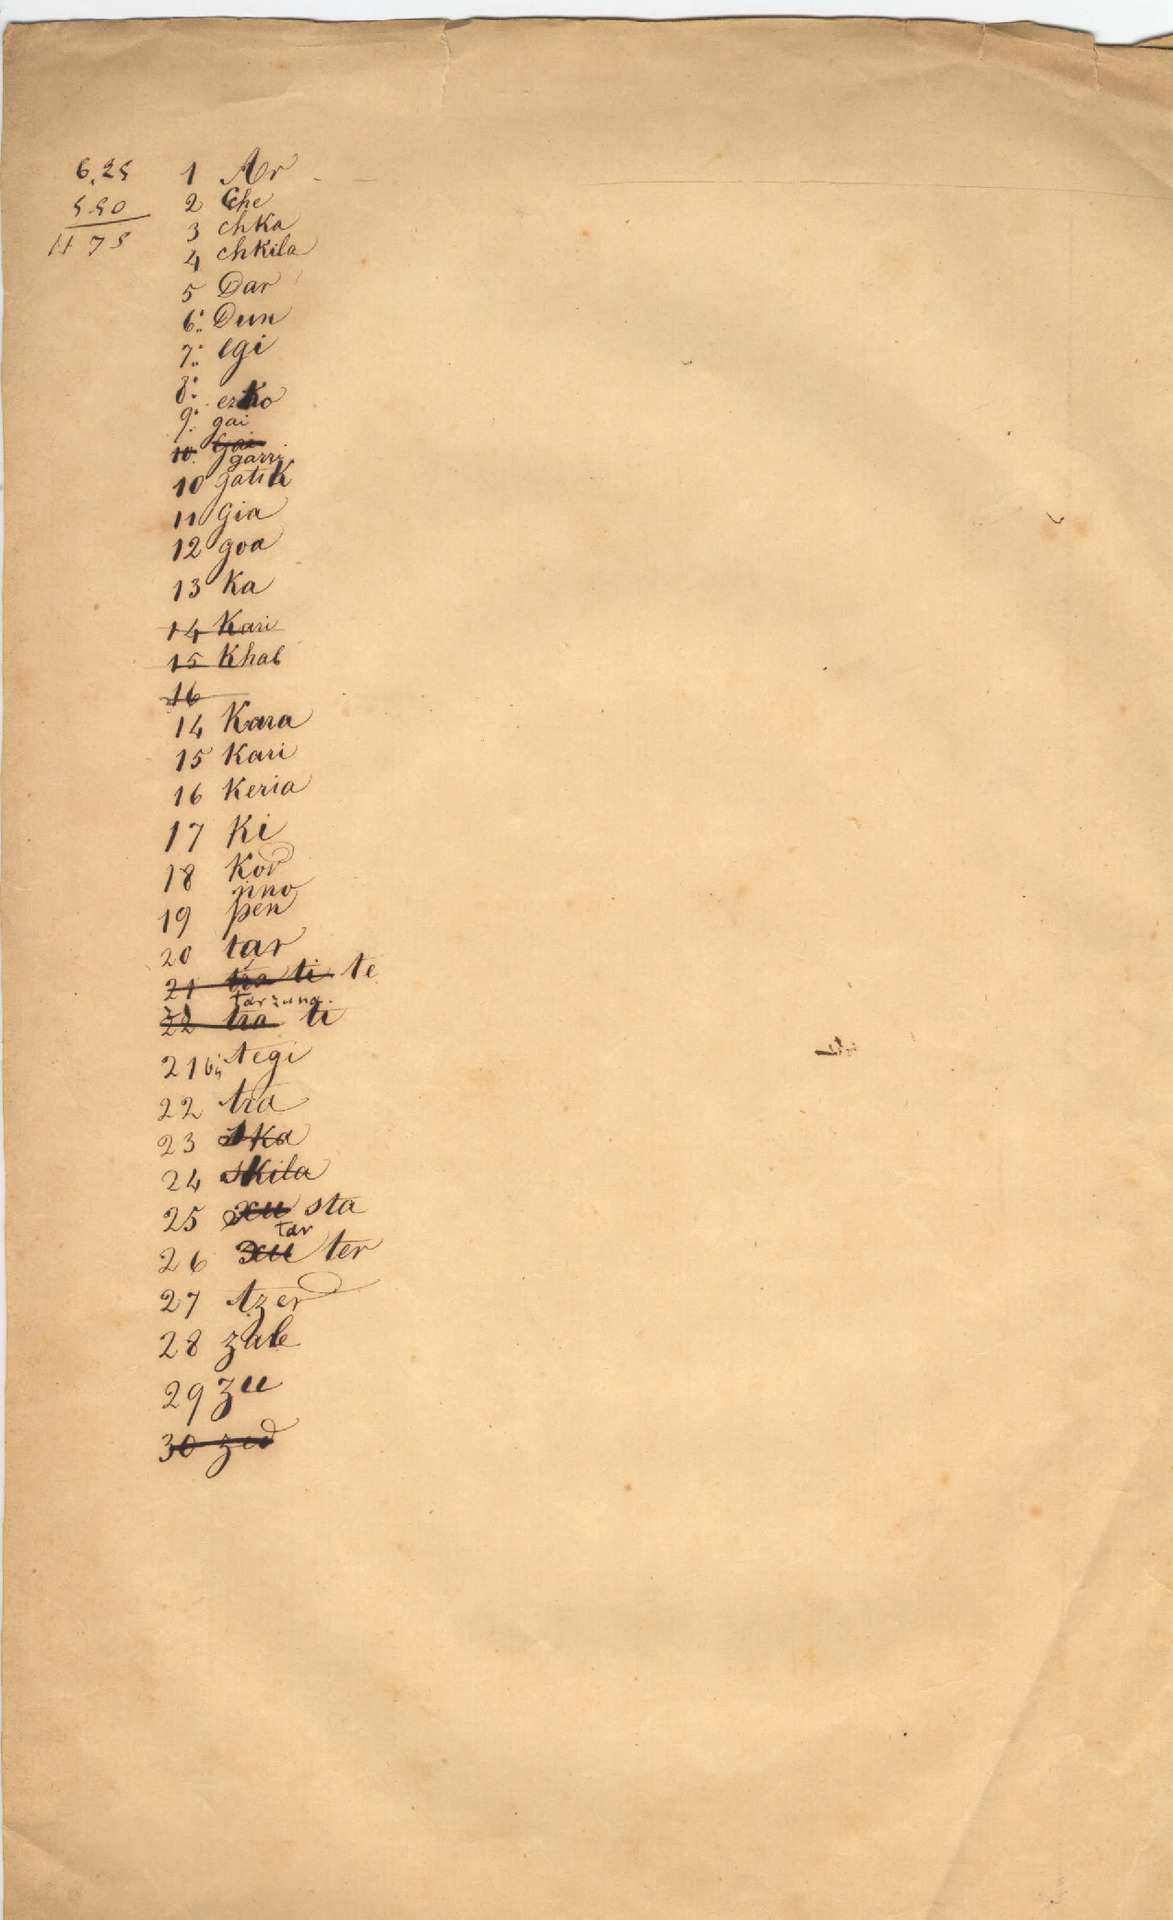 6,25
5 50
11 75
1 Ar
2 Che
3 chka
4 chkila
5 Dar
6 Dun
7 egi
8
9 ezko
gai
10 Gai
garri
10 gatik
11 Gia
12 goa
13 Ka
14 Kari
15 Khal
16
14 Kara
15 Kari
16 Keria
17 Ki
18 Kor
nno
19 pen
20 tar
21 tra ti te
tarzuna
22 tra ti
21 bis tegi
22 tra
23 ska
24 skila
25 xu sta
tar
26 xu ter
27 tzer
28 zale
29 zu
30 zed